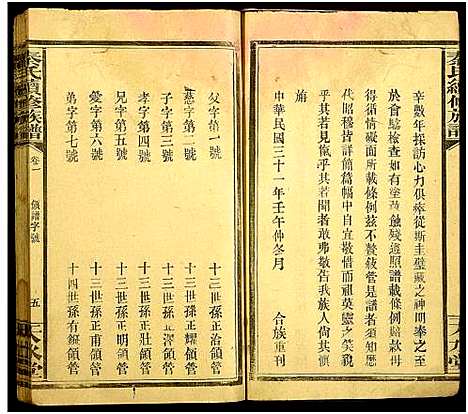 秦氏續修族譜
辛數年採訪心力俱瘁從斯圭璧藏之神明奉之至
於會點檢查如有塗改蝕殘照譜載條例
得徇情礙面所有條例茲不贅敘管者須知歷
代昭穆皆詳簡篇幅中自宜敬惜而祖英靈之笑貌
乎其若見愾乎其若聞者敢以敬告我族人尚其
鑒諸
中華民國三十一年壬午仲冬月 合族重刊
父字第一號 十三世孫正治領管
慈字第二號 十三世孫正耀領管
子字第三號 十三世孫正
孝字第四號 十三世孫正
兄字第五號 十三世孫正甫領管
愛字第六號 十三世孫正
弟字第七號 十四世孫有
秦氏續修族譜 卷一 領譜字號 五 天水堂